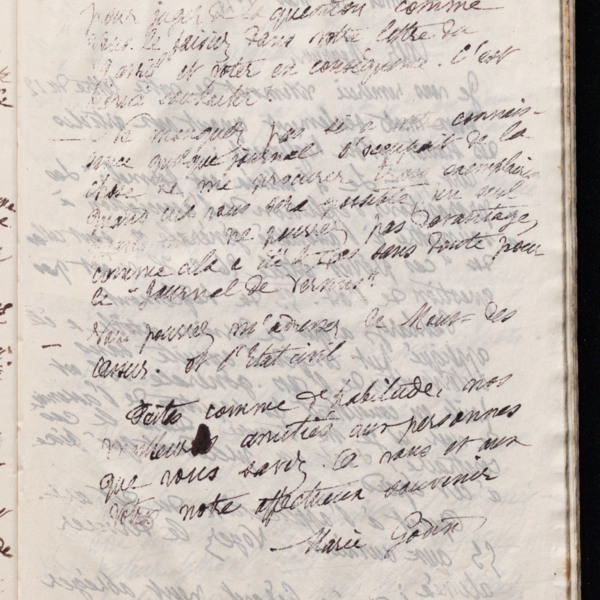 pour juger de la question comme
vous le saisir dans notre lettre du
avril et voter en conséquence. C'est
— Ne manquez pas si à votre connais-
sance quelque journal s'occupait de la
chose de me procurer deux exemplaires
quand cela vous sera possible, un seul
si vous ne pouvez pas davantage,
comme cela a été le cas sans doute pour
le "Journal de Vervins"
— Vous pouvez m'adresser le Mouv- des
caisses. et l'Etat civil
Faites comme d'habitude, nos
meilleures amitiés aux personnes
que vous savez. A vous et aux
vôtres notre affectueux souvenir
Marie Godin